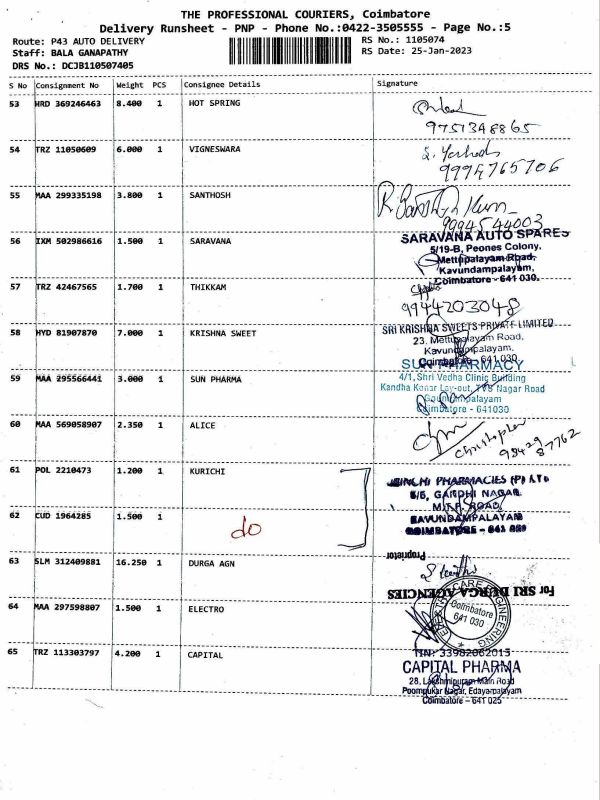 THE PROFESSIONAL COURIERS, Coimbatore
Delivery Runsheet - PNP - Phone No.:0422-3505555 - Page No.:5
Route: P43 AUTO DELIVERY
RS No.: 1105074
Staff: BALA GANAPATHY
RS Date: 25-Jan-2023
DRS No.: DCJB110507405
S No Consignment No Weight PCS Consignee Details Signature
53 HRD 369246463 8.400 1 HOT SPRING
9751348865
54 TRZ 11050609 6.000 1 VIGNESWARA
9994765706
55 MAA 299335198 3.800 1 SANTHOSH
9994544003
56 IXM 502986616 1.500 1 SARAVANA
SARAVANA AUTO SPARES
5/19-B, Peones Colony,
Mettupalayam Road,
Kavundampalayam,
Coimbatore - 641 030.
57 TRZ 42467565 1.700 1 THIKKAM
9944203048
58 HYD 81907870 7.000 1 KRISHNA SWEET
SRI KRISHNA SWEETS PRIVATE LIMITED
23, Mettupalayam Road,
Kavundampalayam,
Coimbatore - 641 030
59 MAA 295566441 3.000 1 SUN PHARMA
SUN PHARMACY
4/1, Shri Vedha Clinic Building
Kandha Konar Lay-out, TVS Nagar Road
Goundampalayam
Coimbatore - 641030
60 MAA 569058907 2.350 1 ALICE
Christopher
98429 87762
61 POL 2210473 1.200 1 KURICHI
PHARMACIES (P) LTD
5/5, GANDHI NAGAR
M.T.P. ROAD
KAVUNDAMPALAYAM
COIMBATORE - 641 030
62 CUD 1964285 1.500 1
do
63 SLM 312409881 16.250 1 DURGA AGN
Proprietor
For SRI DURGA AGENCIES
64 MAA 297598807 1.500 1 ELECTRO
CARE ENGINEERING
Coimbatore
641 030
65 TRZ 113303797 4.200 1 CAPITAL
TIN: 33982062015
CAPITAL PHARMA
28, Lakshmipuram Main Road
Poompukar Nagar, Edayarpalayam
Coimbatore - 641 025